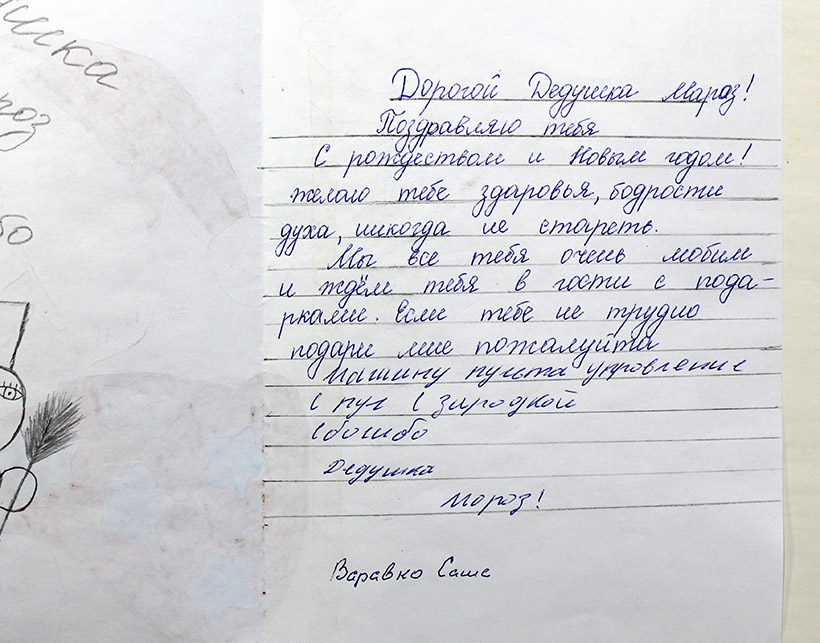 ишка
роз
бо
Дорогой Дедушка Мароз!
Поздравляю тебя
С рождеством и Новым годом!
желаю тебе здаровья, бодрости
духа, никогда не стареть.
Мы все тебя очень любим
и ждём тебя в гости с пода-
рками. Если тебе не трудно
подари мне пожалуйта
Машину пульта упровление
с пул с зиродкой
Сбосибо
Дедушка
Мороз!
Варавко Саше